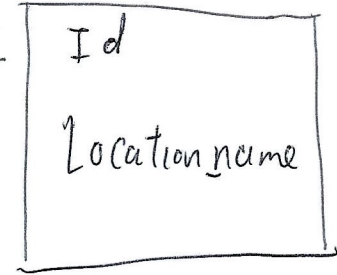 Id
Location_name